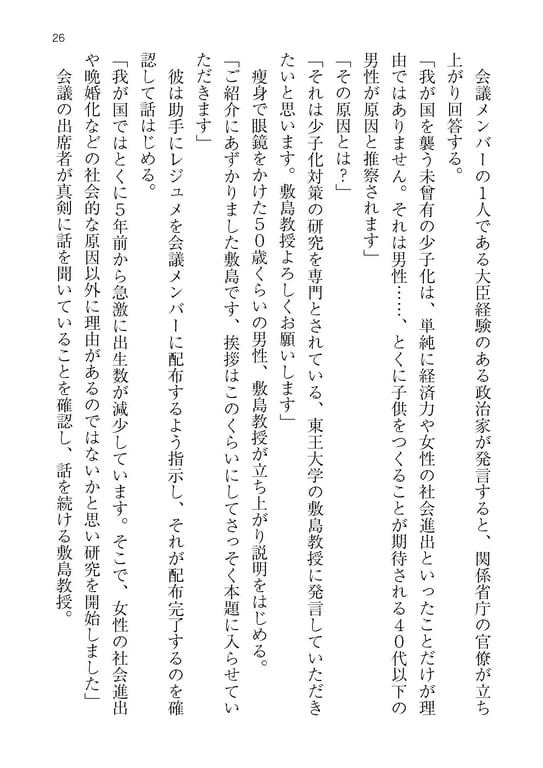 26
会議メンバーの１人である大臣経験のある政治家が発言すると、関係省庁の官僚が立ち
上がり回答する。
「我が国を襲う未曾有の少子化は、単純に経済力や女性の社会進出といったことだけが理
由ではありません。それは男性……、とくに子供をつくることが期待される４０代以下の
男性が原因と推察されます」
「その原因とは？」
「それは少子化対策の研究を専門とされている、東王大学の敷島教授に発言していただき
たいと思います。敷島教授よろしくお願いします」
痩身で眼鏡をかけた５０歳くらいの男性、敷島教授が立ち上がり説明をはじめる。
「ご紹介にあずかりました敷島です、挨拶はこのくらいにしてさっそく本題に入らせてい
ただきます」
彼は助手にレジュメを会議メンバーに配布するよう指示し、それが配布完了するのを確
認して話はじめる。
「我が国ではとくに５年前から急激に出生数が減少しています。そこで、女性の社会進出
や晩婚化などの社会的な原因以外に理由があるのではないかと思い研究を開始しました」
会議の出席者が真剣に話を聞いていることを確認し、話を続ける敷島教授。